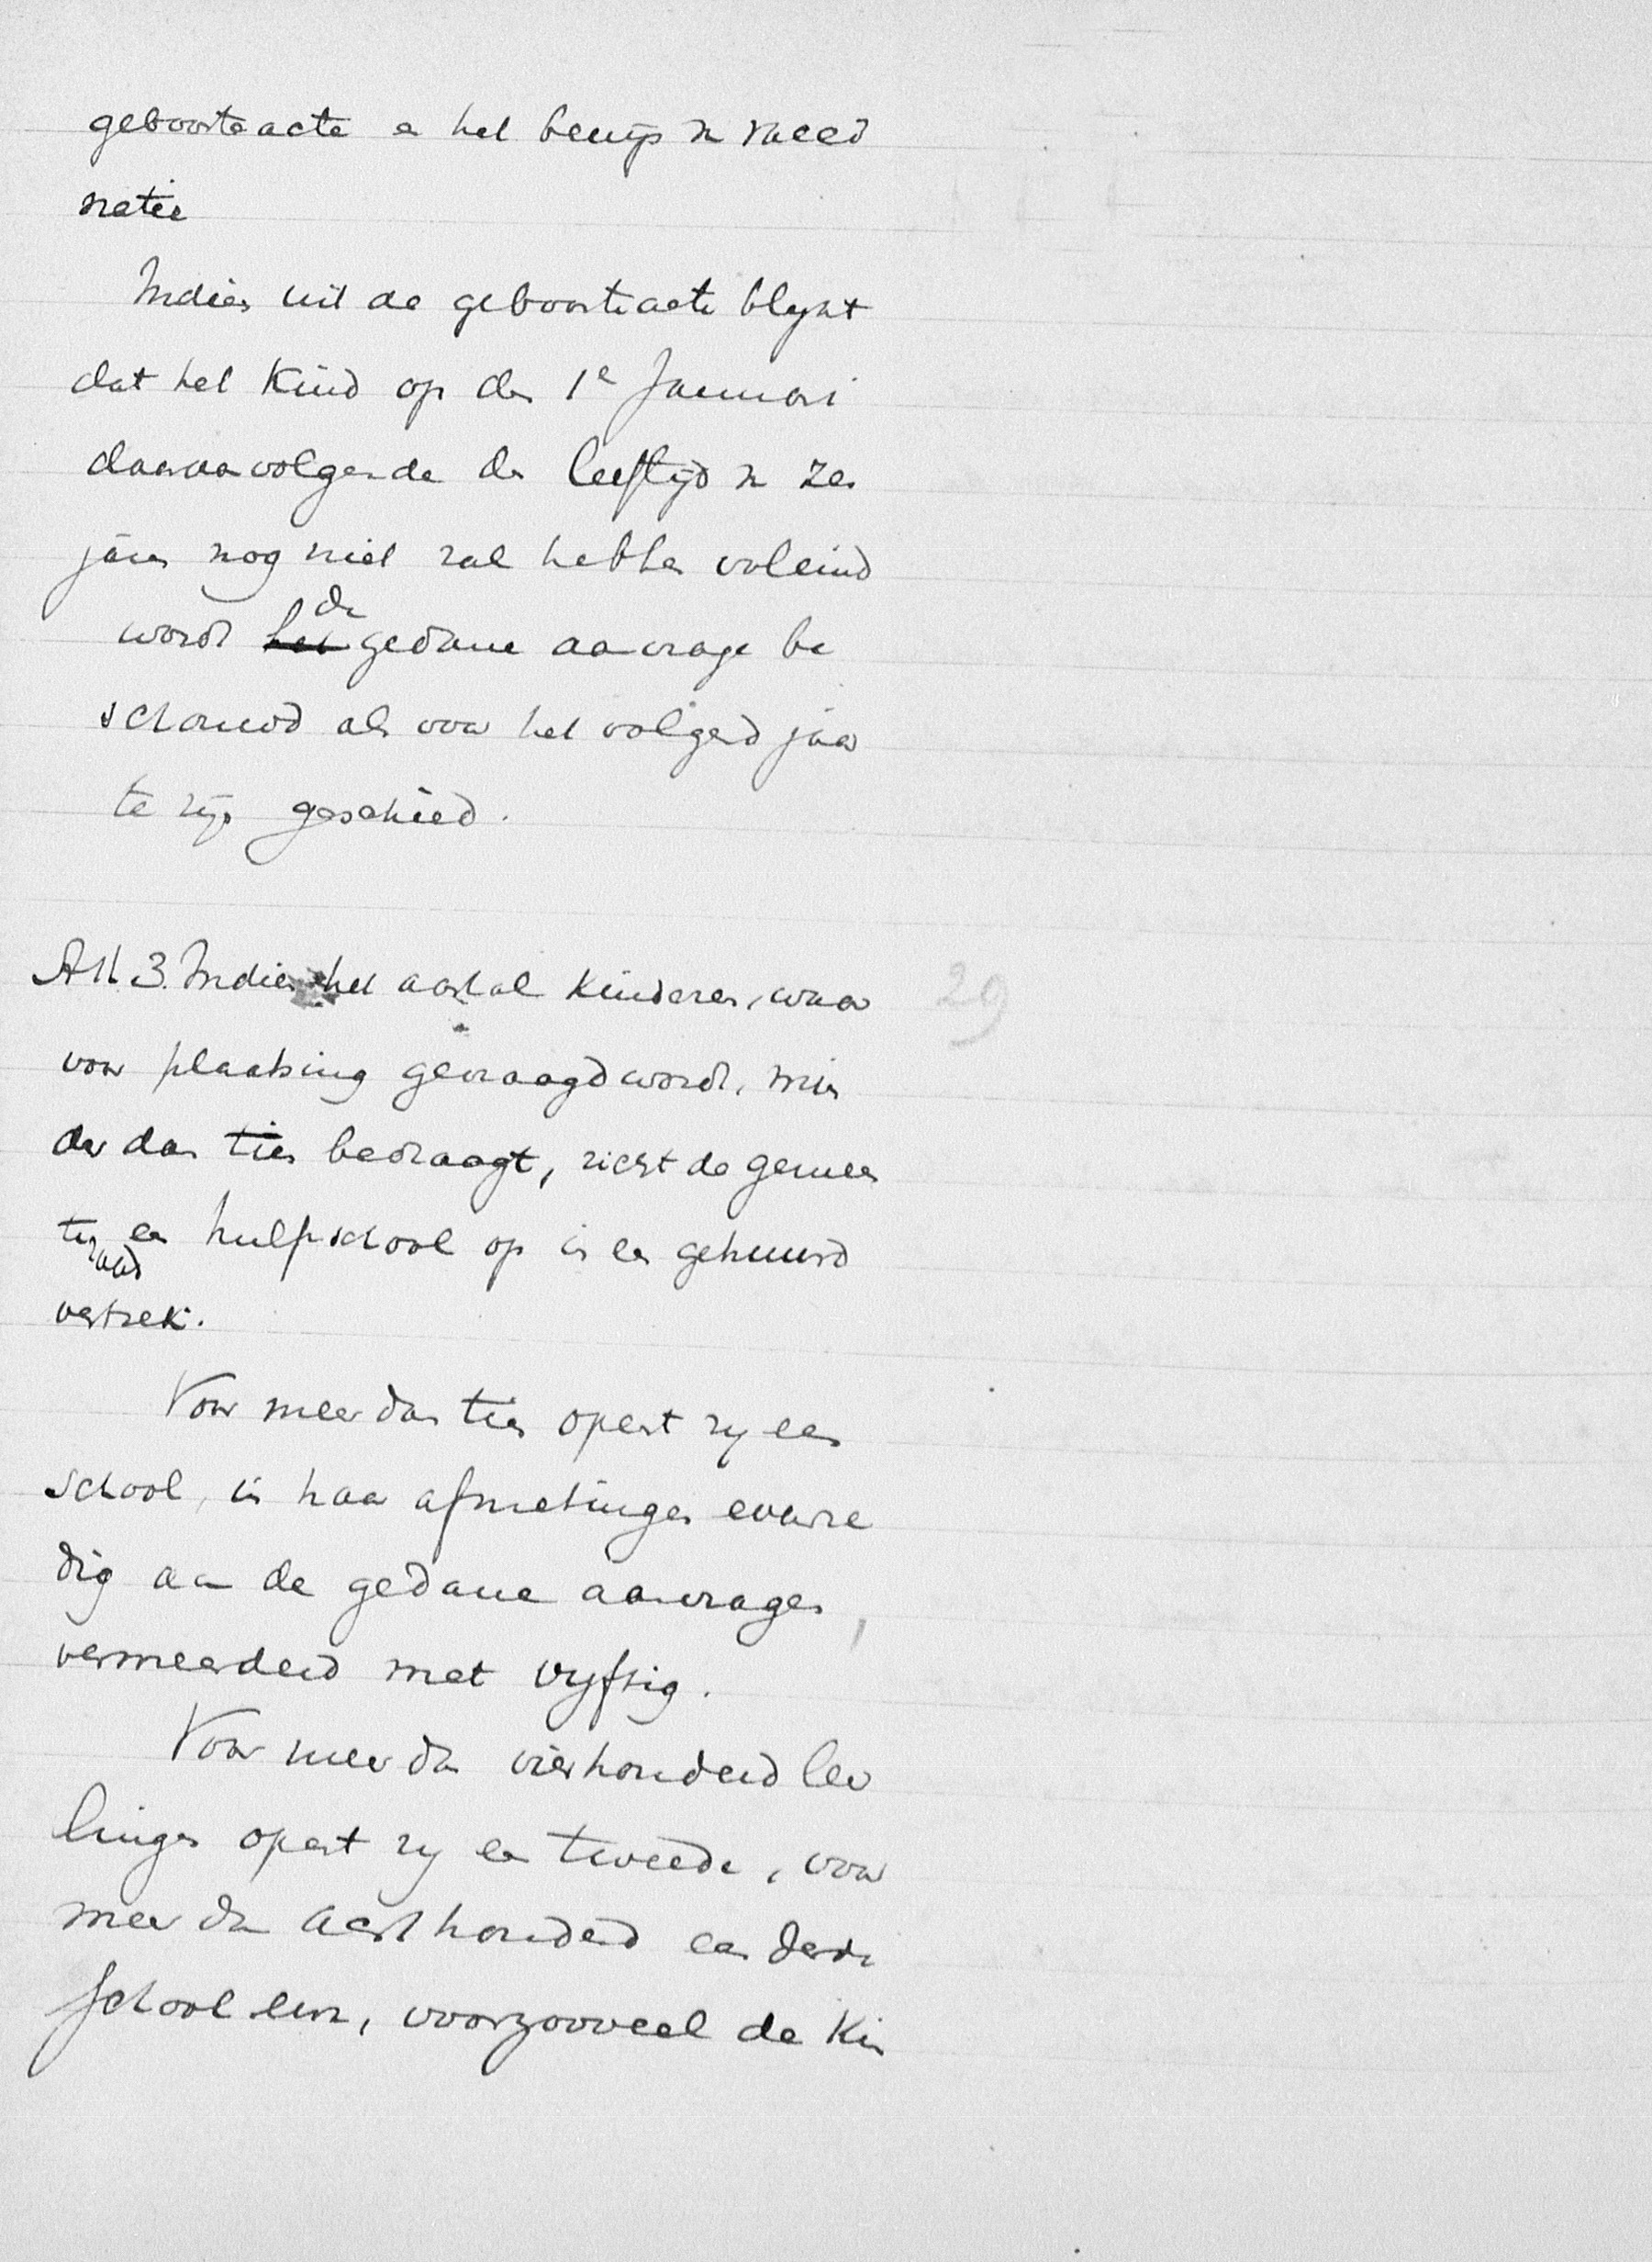 geboorteacte en het bewijs van vacci
natie
Indien uit de geboorteacte blykt
dat het Kind op den 1e Januari
daaraanvolgende den leeftijd van zes
jaren nog niet zal hebben voleind
wordt het de gedane aanvrage be
schouwd als voor het volgend jaar
te zijn geschied.
Art. 3. Indien het aantal kinderen, waar
voor plaatsing gevraagd wordt, min
der dan tien bedraagt, richt de gemeen
teraad een hulpschool op in een gehuurd
vertrek.
Voor meer dan tien opent zy een
school, in haar afmetingen evenre
dig aan de gedane aanvragen,
vermeerderd met vyftig.
Voor meer dan vierhonderd leer
lingen opent zy een tweede, voor
meer dan achthonderd een derde
school enz, voorzooveel de Kin
29